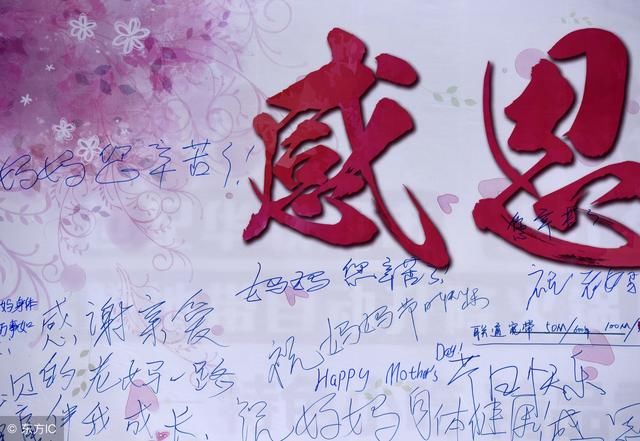 感恩
妈妈您辛苦了!
您辛苦了
妈妈 您辛苦了!
祝
妈身体
万事如
感谢亲爱
祝妈妈节日快乐
联通宽带 50M/600 100M/
的老妈一路
Happy Mother's Day!
节日快乐
伴我成长
祝妈妈身体健康
© 东方IC